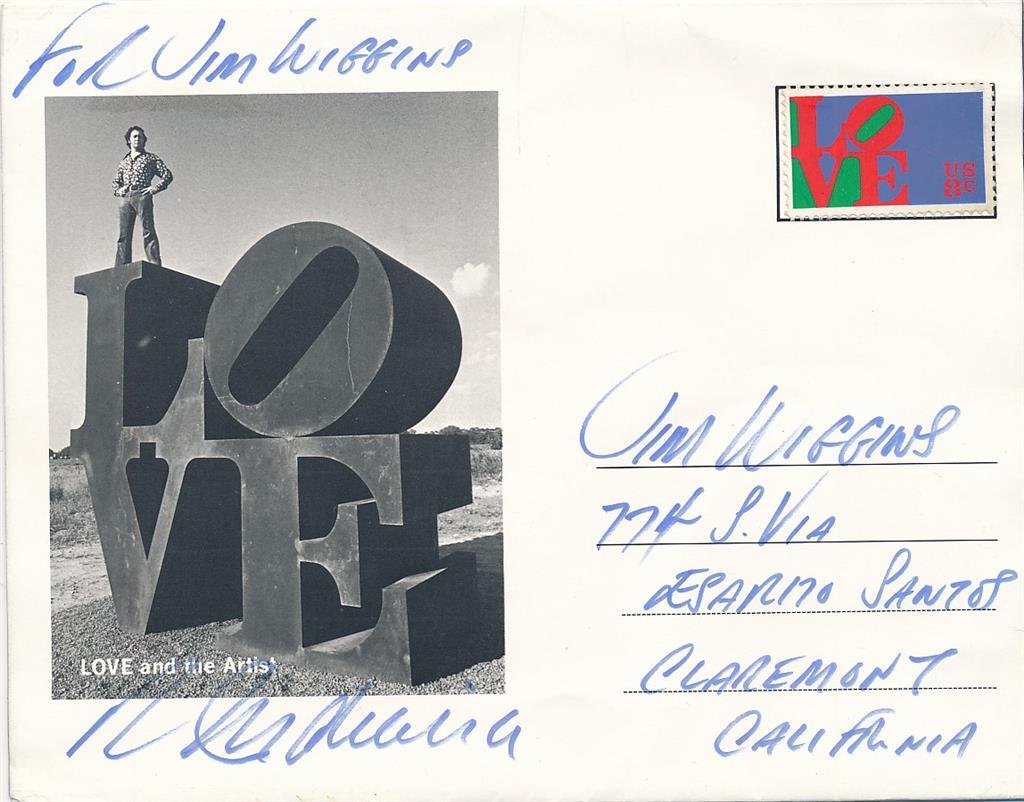 FOR JIM WIGGINS
LOVE
US
8c
LO
VE
JIM WIGGINS
774 S. VIA
ESARITO SANTOS
CLAREMONT
CALIFORNIA
LOVE and the Artist
R Indiana